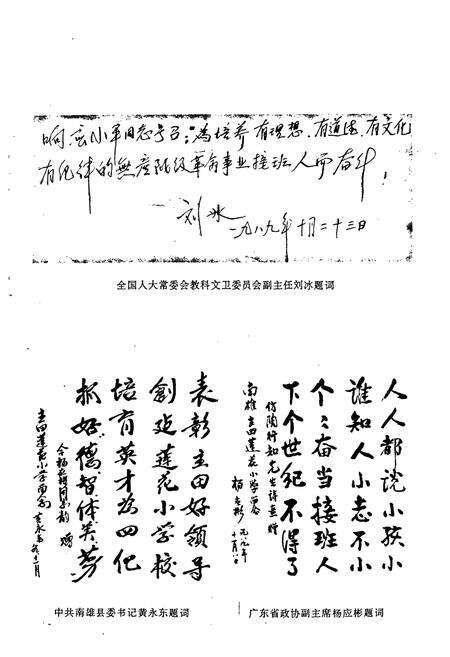 响应小平同志号召：为培养有理想、有道德、有文化
有纪律的無产阶级革命事业接班人而奋斗！
刘冰
一九八九年十月二十三日
全国人大常委会教科文卫委员会副主任刘冰题词
人人都说小孩小
谁知人小志不小
个个奋当接班人
下个世纪不得了
仿陶行知先生诗意赠
南雄主田莲花小学
杨应彬
一九八九年
表彰主田好领导
創建莲花小学校
培育英才为四化
抓好德智体美劳
主田莲花小学
广东省政协副主席杨应彬题词
中共南雄县委书记黄永东题词